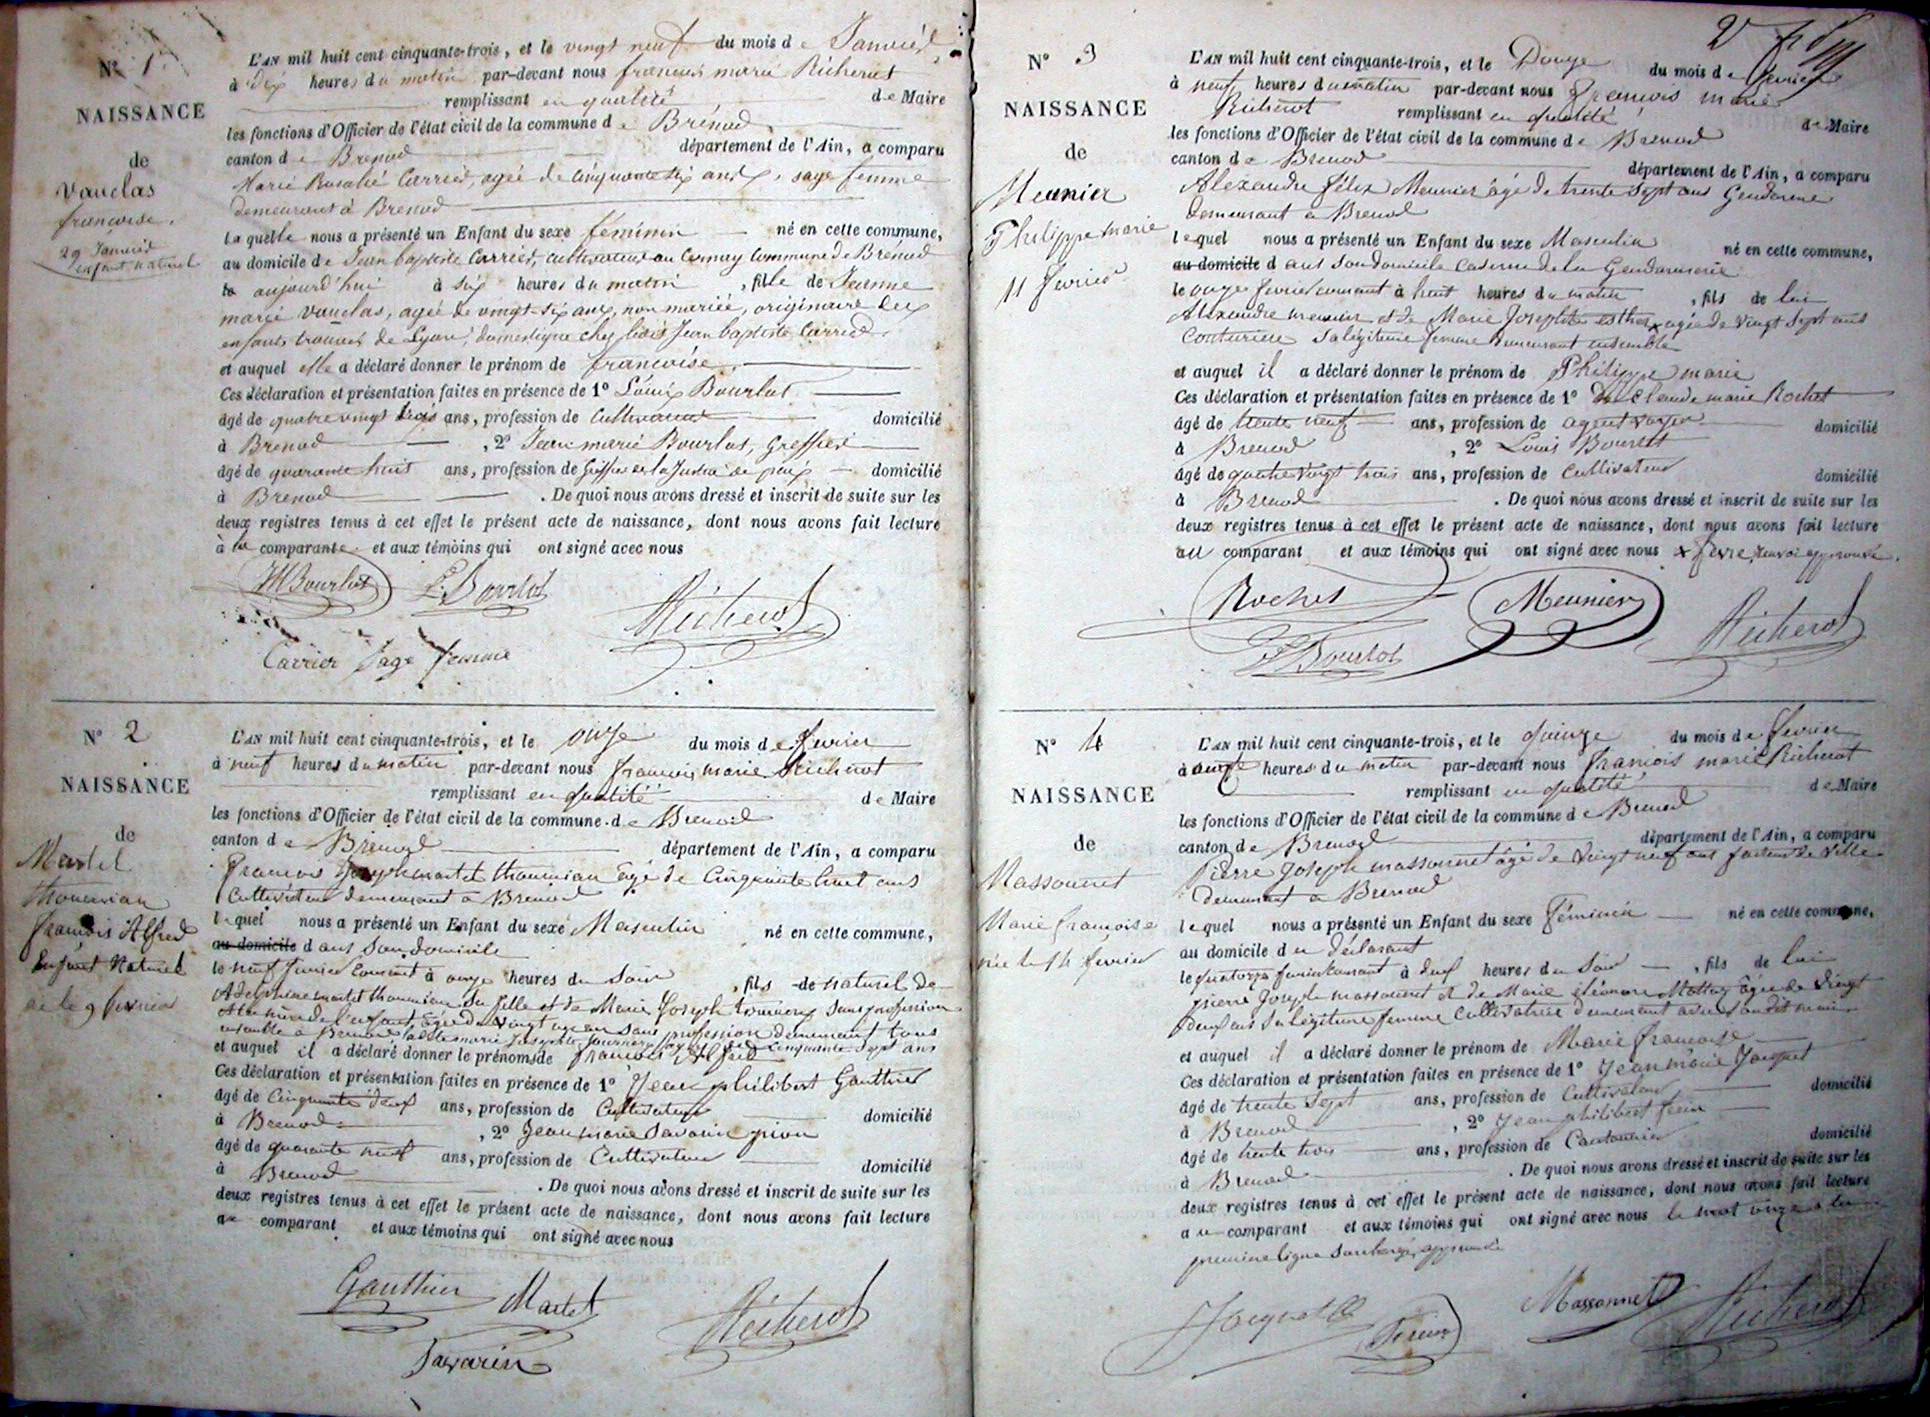 N° 1
NAISSANCE
de
Vauclas
francoise.
29 Janvier
enfant naturel
L'AN mil huit cent cinquante-trois, et le vingt neuf du mois de Janvier
à dix heures du matin par-devant nous francois marie Richerot
remplissant en qualité de Maire
les fonctions d'Officier de l'état civil de la commune de Brénod
canton de Brenod département de l'Ain, a comparu
Marie Rosalie Carrier, agée de cinquante six ans, sage femme
demeurant à Brenod
laquelle nous a présenté un Enfant du sexe féminin né en cette commune,
au domicile de Jean baptiste Carrier, cultivateur au Cernay Commune de Brénod
le aujourd'hui à six heures du matin, fille de Jeanne
marie Vauclas, agée de vingt-six ans, non mariée, originaire des
enfants trouvés de Lyon, domestique chez ledit Jean baptiste Carrier
et auquel elle a déclaré donner le prénom de francoise.
Ces déclaration et présentation faites en présence de 1° Louis Bourlot
âgé de quatre vingt trois ans, profession de Cultivateur domicilié
à Brenod, 2° Jean marie Bourlot, Greffier
âgé de quarante huit ans, profession de Greffier de la Justice de paix domicilié
à Brenod. De quoi nous avons dressé et inscrit de suite sur les
deux registres tenus à cet effet le présent acte de naissance, dont nous avons fait lecture
à la comparante et aux témoins qui ont signé avec nous
JM Bourlot L. Bourlot Richerot
Carrier Sage femme
N° 2
NAISSANCE
de
Martel
thouverian
francois Alfred
Enfant Naturel
né le 9 fevrier
L'AN mil huit cent cinquante-trois, et le onze du mois de fevrier
à neuf heures du matin par-devant nous francois marie Richerot
remplissant en qualité de Maire
les fonctions d'Officier de l'état civil de la commune de Brenod
canton de Brenod département de l'Ain, a comparu
francois Joseph martel agé de Cinquante huit ans
Cultivateur demeurant a Brenod
lequel nous a présenté un Enfant du sexe Masculin né en cette commune,
au domicile dans son domicile
le neuf fevrier courant à onze heures du soir, fils de naturel de
martel sa fille et de Marie Joseph sans profession
mère de l'enfant agée de vingt un ans sans profession demeurant tous
ensemble a Brenod marie Joseph cinquante sept ans
et auquel il a déclaré donner le prénom de francois Alfred
Ces déclaration et présentation faites en présence de 1° Jean philibert Gauthier
âgé de Cinquante deux ans, profession de Cultivateur domicilié
à Brenod, 2° Jean marie Savarin
âgé de quarante neuf ans, profession de Cultivateur domicilié
à Brenod. De quoi nous avons dressé et inscrit de suite sur les
deux registres tenus à cet effet le présent acte de naissance, dont nous avons fait lecture
au comparant et aux témoins qui ont signé avec nous
Gauthier Martel Richerot
Savarin
N° 3
NAISSANCE
de
Meunier
Philippe marie
11 fevrier
L'AN mil huit cent cinquante-trois, et le Douze du mois de fevrier
à neuf heures du matin par-devant nous francois marie
Richerot remplissant en qualité de Maire
les fonctions d'Officier de l'état civil de la commune de Brenod
canton de Brenod département de l'Ain, a comparu
Alexandre félix Meunier agé de trente sept ans Gendarme
demeurant a Brenod
lequel nous a présenté un Enfant du sexe Masculin né en cette commune,
au domicile dans son domicile caserne de la Gendarmerie
le onze fevrier courant à huit heures du matin, fils de lui
Alexandre meunier et de Marie Josephte esther x agée de vingt sept ans
Couturiere sa légitime femme demeurant ensemble
et auquel il a déclaré donner le prénom de Philippe marie
Ces déclaration et présentation faites en présence de 1° Claude marie Rochet
âgé de trente neuf ans, profession de agent voyer domicilié
à Brenod, 2° Louis Bourlot
âgé de quatre vingt trois ans, profession de Cultivateur domicilié
à Brenod. De quoi nous avons dressé et inscrit de suite sur les
deux registres tenus à cet effet le présent acte de naissance, dont nous avons fait lecture
au comparant et aux témoins qui ont signé avec nous x fevre renvoi approuvé.
Rochet Meunier Richerot
L. Bourlot
N° 4
NAISSANCE
de
Massonnet
Marie françoise
née le 14 fevrier
L'AN mil huit cent cinquante-trois, et le quinze du mois de fevrier
à onze heures du matin par-devant nous francois marie Richerot
remplissant en qualité de Maire
les fonctions d'Officier de l'état civil de la commune de Brenod
canton de Brenod département de l'Ain, a comparu
Pierre Joseph massonnet agé de vingt neuf ans facteur de ville
demeurant a Brenod
lequel nous a présenté un Enfant du sexe féminin né en cette commune,
au domicile du déclarant
le quatorze fevrier courant à deux heures du soir, fils de lui
pierre Joseph massonnet et de Marie éléonore agée de vingt
deux ans sa légitime femme Cultivatrice demeurant
et auquel il a déclaré donner le prénom de Marie francoise
Ces déclaration et présentation faites en présence de 1° Jean marie Jacquet
âgé de trente sept ans, profession de Cultivateur domicilié
à Brenod, 2° Jean philibert
âgé de trente trois ans, profession de Cantonnier domicilié
à Brenod. De quoi nous avons dressé et inscrit de suite sur les
deux registres tenus à cet effet le présent acte de naissance, dont nous avons fait lecture
au comparant et aux témoins qui ont signé avec nous le mot onze a la
premiere ligne surchargé approuvé
Jacquet Massonnet Richerot